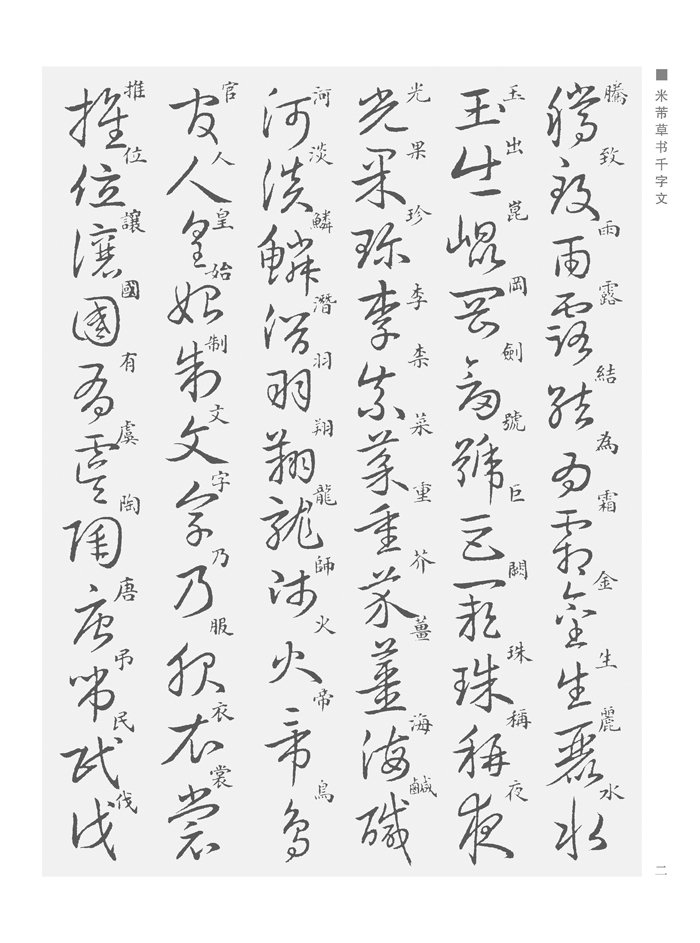 米芾草书千字文
騰致雨露結為霜金生麗水
玉出崑岡劍號巨闕珠稱夜
光果珍李柰菜重芥薑海鹹
河淡鱗潛羽翔龍師火帝鳥
官人皇始制文字乃服衣裳
推位讓國有虞陶唐吊民伐
二